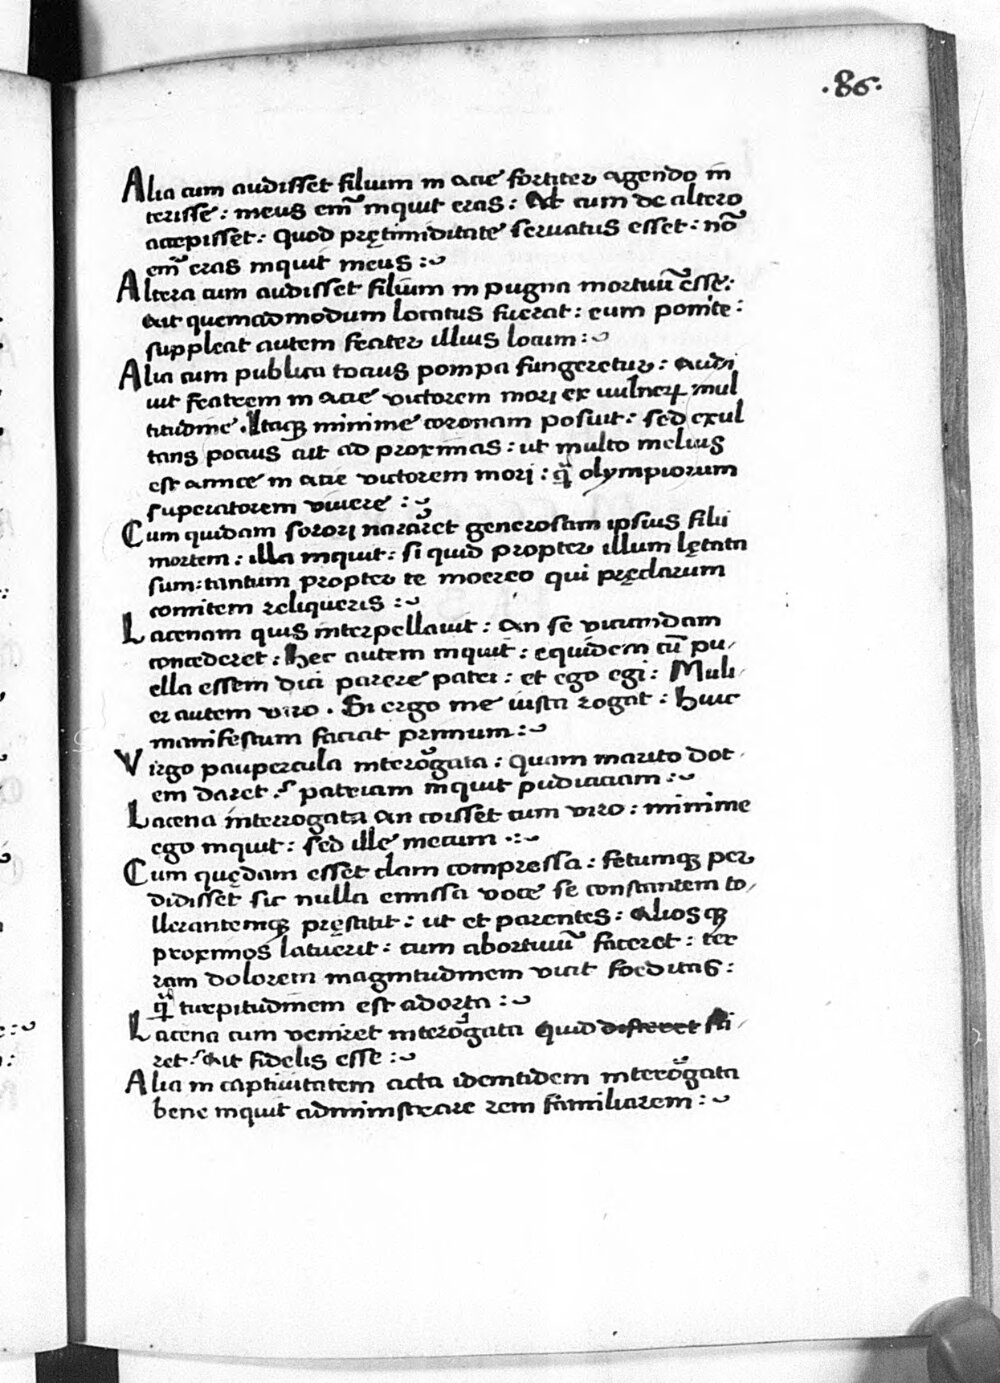 .86.
Alia cum audisset filium in acie fortiter agendo in
terisse: meus em̃ inquit eras: At cum de altero
accepisset: Quod pręt timiditate seruatus esset: nõ
em̃ eras inquit meus:
Altera cum audisset filium in pugna mortuũ esse:
Ait quemadmodum locatus fuerat: eum ponite:
suppleat autem frater illius locum:
Alia cum publica totius pompa fungeretur: Audi
uit fratrem in acie uictorem mori ex uulnerꝝ mul
titudine. Itaqꝫ minime coronam posuit: sed exul
tans potius ait ad proximas: ut multo melius
est amice in acie uictorem mori: q̃ olympiorum
superatorem uiuere:
Cum quidam sorori narãret generosam ipsius filii
mortem: illa inquit: si quid propter illum lętata
sum: tantum propter te moereo qui pręclarum
comitem reliqueris:
Lacenam quis interpellauit: An se uiciumdam
concederet: hec autem inquit: equidem cũ pu
ella essem dici parere patri: et ego egi: Muli
er autem uiro. Si ergo me iusta rogat: huic
manifestum faciat primum:
Virgo paupercula interogata: quam marito dot
em daret: patriam inquit pudiciciam:
Lacena interrogata an coisset cum uiro: minime
ego inquit: sed ille mecum:
Cum quędam esset clam compressa: fetumqꝫ per
didisset sic nulla emissa uoce se constantem to
llerantemqꝫ pręstitit: ut et parentes: Aliosqꝫ
proximos latuerit: cum abortiuũ faceret: ter
ram dolorem magnitudinem uicit foeditas:
q̃ turpitudinem est adorta:
Lacena cum ueniret interogata quid disceret sci
ret: Ait fidelis esse:
Alia in captiuitatem acta identidem interogata
bene inquit administrare rem familiarem: